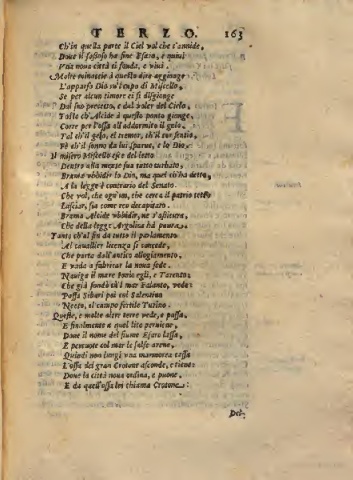 TERZO. 163
Ch'in quella parte il Ciel vol che t'annide,
Doue il sassoso ha fine Esaro, e quiui
Vna noua città ti fonda, e viui.
Molte minaccie à quello dire aggiunge
L'apparso Dio su'l capo di Miscello,
Se per alcun timore ei si disgiunge
Dal suo precetto, e dal voler del Cielo,
Tosto ch'Alcide à questo punto giunge,
Corre per l'ossa all'addormito il gelo,
Tal ch'il gelo, el tremor, ch'il cor sentio,
Fè ch'il sonno da lui sparue, e lo Dio.
Il misero Miscello esce del letto
Dentro alla mente sua tutto turbato,
Brama vbbidir lo Dio, ma quel ch'ha detto,
A la legge è contrario del Senato.
Che vol, che ogn'un, che cerca il patrio tetto
Lasciar, sia come reo decapitato.
Brama Alcide vbbidir, ne s'assicura,
Che della legge Argolica hà paura.
Tanto ch'al fin da tutto il parlamento
Al cauallier licenza si concede,
Che parta dall'antico alloggiamento,
E vada a fabricar la noua sede.
Nauiga il mare Ionio egli, e Tarento,
Che già fondò ch'l mar Falanto, vede
Passa Sibari poi col Salentino
Neeto, al campo fertile Turino.
Queste, e molte altre terre vede, e passa,
E finalmente a quel lito peruiene,
Doue il nome del fiume Esaro lassa,
E percuote col mar le salse arene,
Quindi non lungi vna marmorea cassa
L'ossa del gran Crotone asconde, e tiene
Doue la città noua ordina, e pone.
E da quell'ossa lei chiama Crotone:
Del-